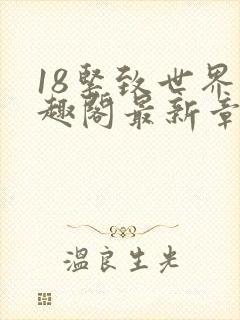 18坚致世界
趣阁最新章
温良生光